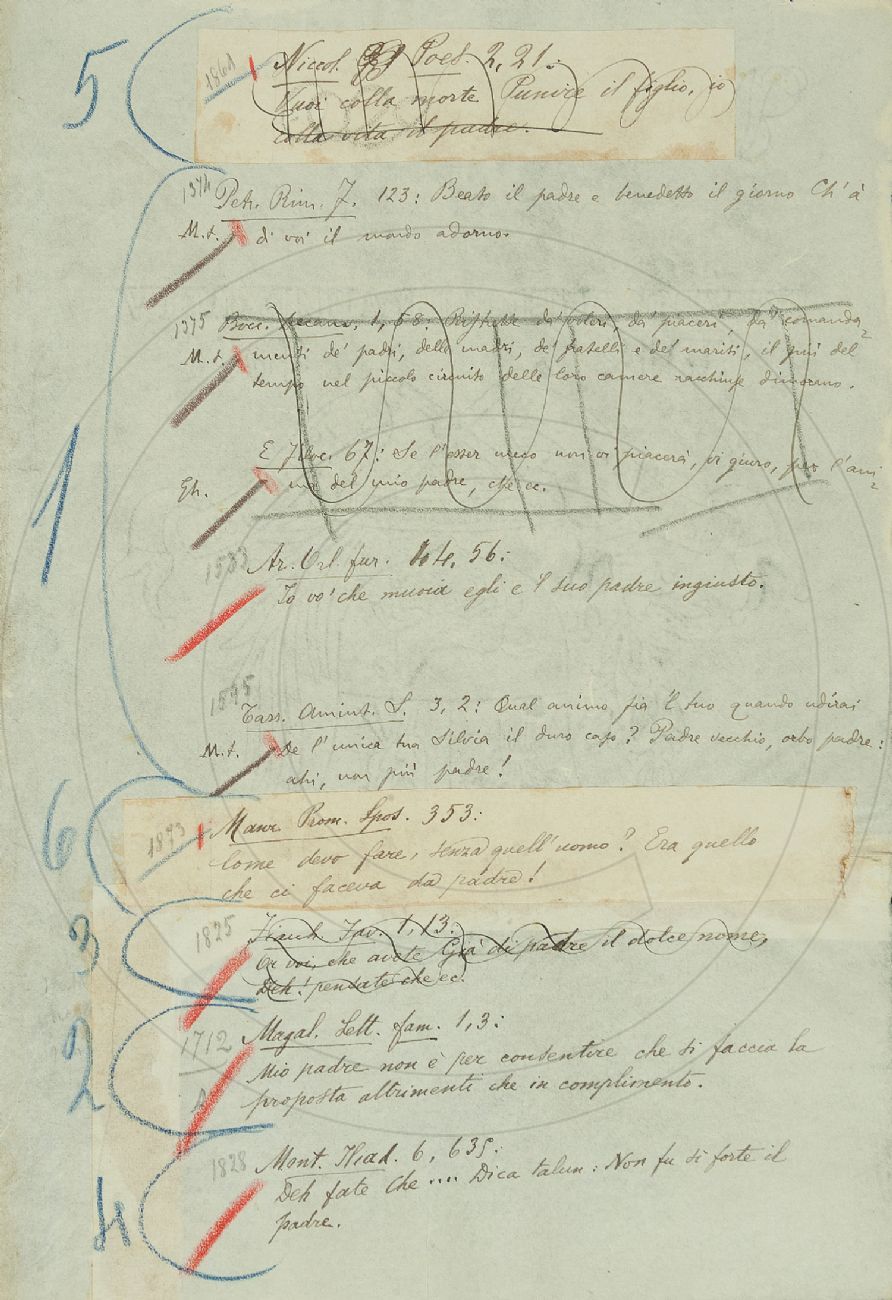 5
1861
Niccol. Poes. 2, 21:
Vuoi colla morte Punire il figlio, io
colla vita il padre.
1374
Petr. Rim. I. 123: Beato il padre e benedetto il giorno Ch' à
M. t. di voi il mondo adorno.
1375
Bocc. Decam. 1, 68: Ristrette da' voleri, da' piaceri, da' comanda-
M. t. menti de' padri, delle madri, de' fratelli e de' mariti, il più del
tempo nel piccolo circuito delle loro camere racchiuse dimorano.
1
E Filoc. 67: Se l'esser meco non vi piacerà, vi giuro, per l'ani-
Gh. ma del mio padre, che ec.
1533
Ar. Orl. fur. 44, 56:
Io vo' che muoia egli e 'l suo padre ingiusto.
1595
Tass. Amint. S. 3, 2: Qual animo fia 'l tuo quando udirai
M. t. De l'unica tua Silvia il duro caso? Padre vecchio, orbo padre:
ahi, non più padre!
6
1873
Manz. Prom. Spos. 353:
Come devo fare, senza quell'uomo? Era quello
che ci faceva da padre!
3
1825
Fiacch. Fav. 1, 13:
Or voi, che avete Già di padre il dolce nome,
Deh! pensate che ec.
2
1712
Magal. Lett. fam. 1, 3:
Mio padre non è per consentire che si faccia la
proposta altrimenti che in complimento.
4
1828
Mont. Iliad. 6, 635:
Deh fate Che .... Dica talun: Non fu sì forte il
padre.